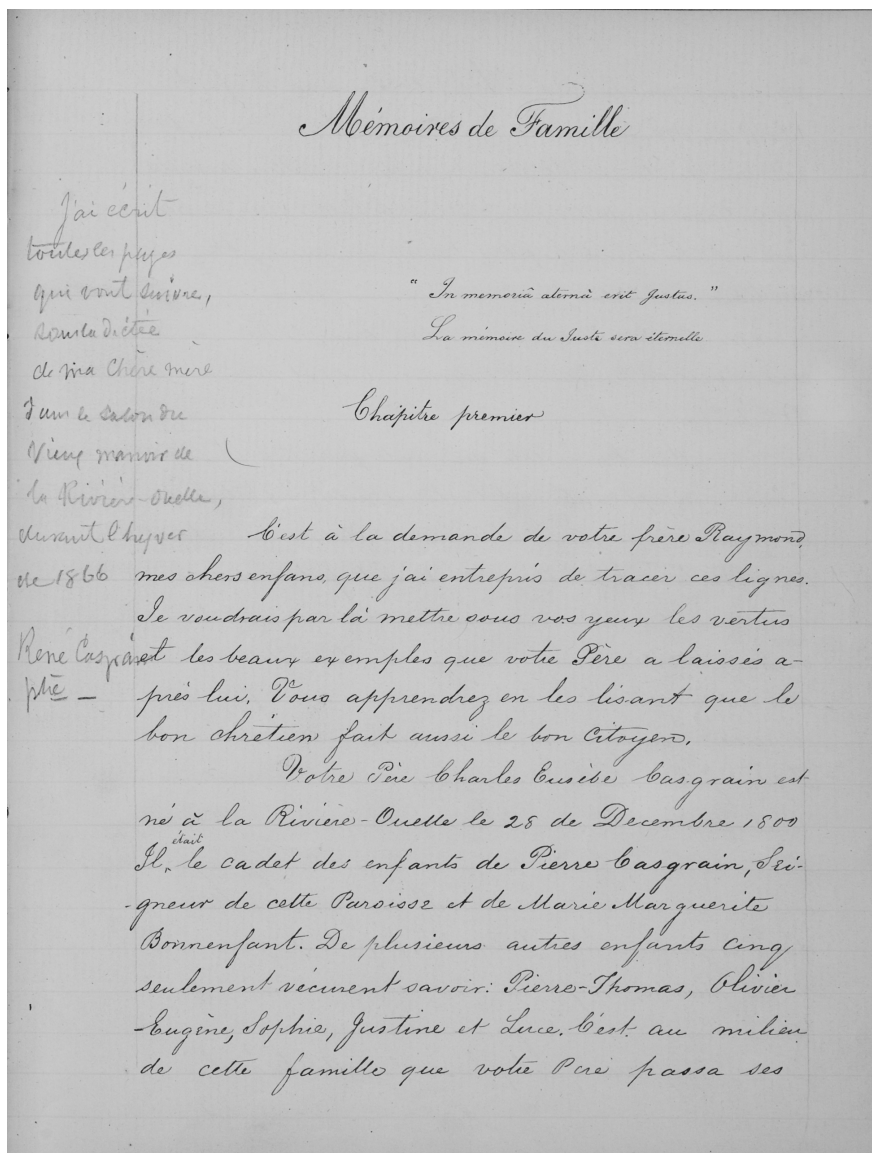 Mémoires de Famille
J'ai écrit
toutes les pages
qui vont suivre,
sous la dictée
de ma chère mère
dans le salon du
vieux manoir de
la Rivière-Ouelle,
durant l'hyver
de 1866
René Casgrain
ptre
" In memoriâ æternâ erit Justus. "
La mémoire du Juste sera éternelle
Chapitre premier
C'est à la demande de votre frère Raymond,
mes chers enfans, que j'ai entrepris de tracer ces lignes.
Je voudrais par là mettre sous vos yeux les vertus
et les beaux exemples que votre Père a laissés a-
près lui. Vous apprendrez en les lisant que le
bon chrétien fait aussi le bon citoyen.
Votre Père Charles Eusèbe Casgrain est
né à la Rivière-Ouelle le 28 de Decembre 1800
Il était le cadet des enfants de Pierre Casgrain, Sei-
-gneur de cette Paroisse et de Marie Marguerite
Bonnenfant. De plusieurs autres enfants cinq
seulement vécurent savoir: Pierre-Thomas, Olivier
Eugène, Sophie, Justine et Luce. C'est au milieu
de cette famille que votre Père passa ses